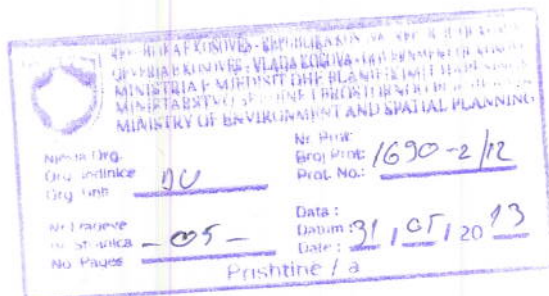 REPUBLIKA E KOSOVËS - REPUBLIKA KOSOVA - REPUBLIC OF KOSOVO
QEVERIA E KOSOVËS - VLADA KOSOVA - GOVERNMENT OF KOSOVO
MINISTRIA E MJEDISIT DHE PLANIFIKIMIT HAPËSINOR
MINISTARSTVO SREDINE I PROSTORNOG PLANIRANJA
MINISTRY OF ENVIRONMENT AND SPATIAL PLANNING
Njësia Org.
Org. Jedinica
Org. Unit
DU
Nr. Prot.
Broj Prot:
Prot. No.:
1690-2/12
Nr. i Faqeve
Br. Stranica
No. Pages
- 05 -
Data :
Datum :
Date :
31 / 05 / 20 13
Prishtinë / a